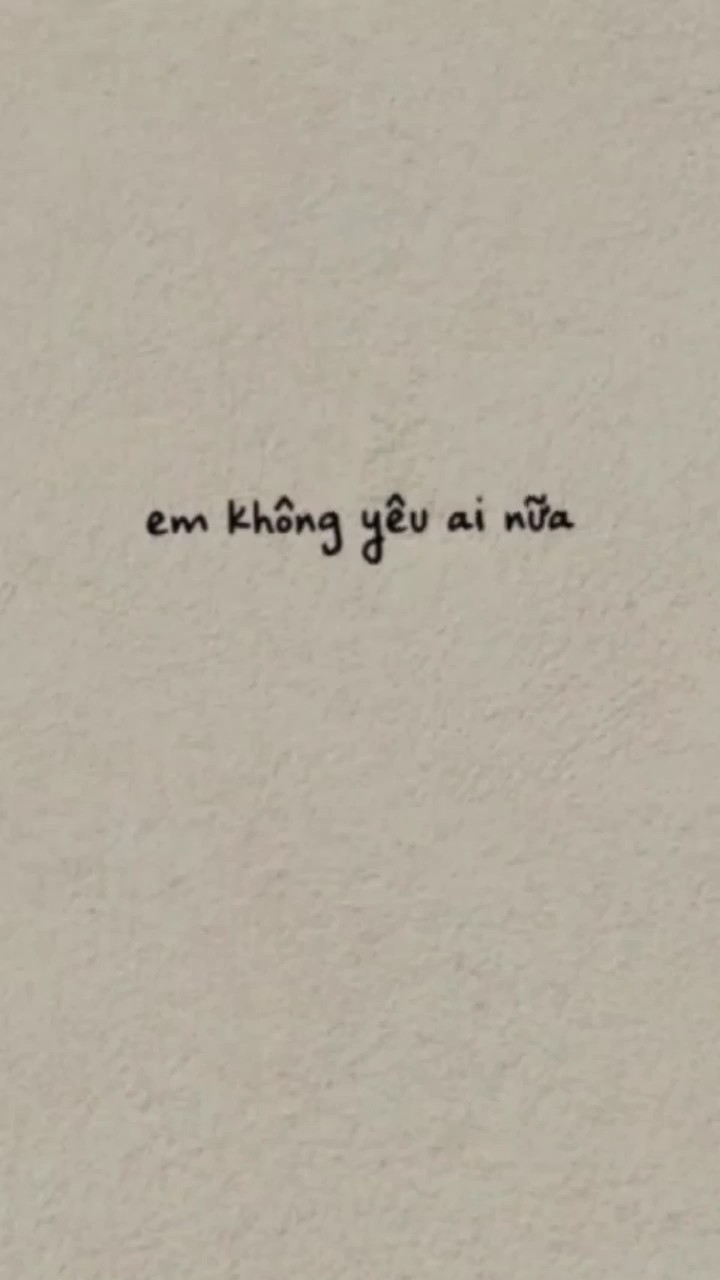 em không yêu ai nữa